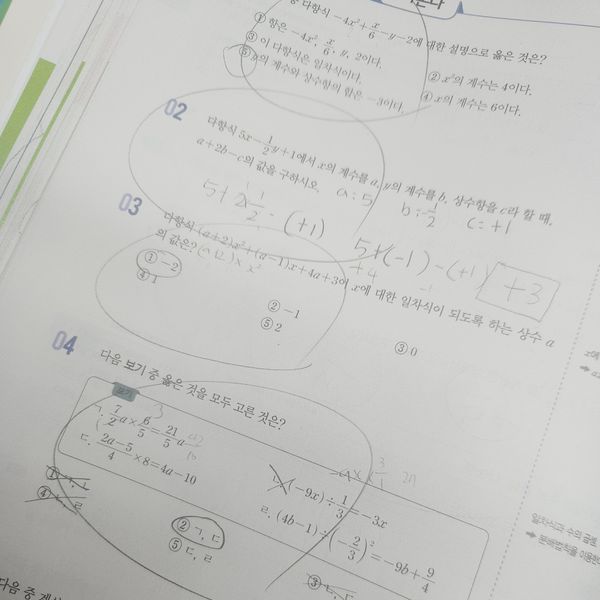 다항식 -4x²+x/6-y-2에 대한 설명으로 옳은 것은?
① 항은 -4x², x/6, y, 2이다.
② x²의 계수는 4이다.
③ 이 다항식은 일차식이다.
④ x의 계수는 6이다.
⑤ y의 계수와 상수항의 합은 -3이다.
02
다항식 5x-1/2y+1에서 x의 계수를 a, y의 계수를 b, 상수항을 c라 할 때,
a+2b-c의 값을 구하시오.
a:5
c:+1
-(+1)
5+(-1)-(+1)
+4
+3
03
다항식 (a+2)x²+(a-1)x+4a+3이 x에 대한 일차식이 되도록 하는 상수 a
의 값은?
① -2
② -1
③ 0
④ 1
⑤ 2
04
다음 보기 중 옳은 것을 모두 고른 것은?
보기
ㄱ. 7/2a×6/5=21/5a
ㄴ. (-9x)÷1/3=-3x
ㄷ. (2a-5)/4×8=4a-10
ㄹ. (4b-1)÷(-2/3)²=-9b+9/4
① ㄱ, ㄴ
② ㄱ, ㄷ
③ ㄴ, ㄷ
④ ㄴ, ㄹ
⑤ ㄷ, ㄹ
일차식과 수의 곱셈
다음 중